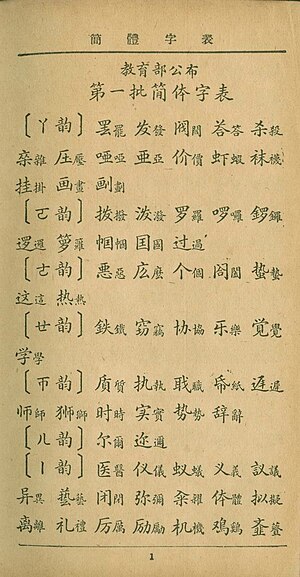 簡體字表
教育部公布
第一批简体字表
〔ㄚ韵〕罢罷 发發 阀閥 荅答 杀殺
杂雜 压壓 哑啞 亚亞 价價 虾蝦 袜襪
挂掛 画畫 划劃
〔ㄛ韵〕拨撥 泼潑 罗羅 啰囉 锣鑼
逻邏 箩籮 帼幗 国國 过過
〔ㄜ韵〕恶惡 庅麼 个個 阁閣 蛰蟄
这這 热熱
〔ㄝ韵〕鉄鐵 窃竊 协協 乐樂 覚覺
学學
〔ㄭ韵〕质質 执執 职職 帋紙 迟遲
师師 狮獅 时時 实實 势勢 辞辭
〔ㄦ韵〕尔爾 迩邇
〔ㄧ韵〕医醫 仪儀 蚁蟻 义義 议議
异異 兿藝 闭閉 弥彌 籴糴 体體 拟擬
离離 礼禮 厉厲 励勵 机機 鸡鷄
1